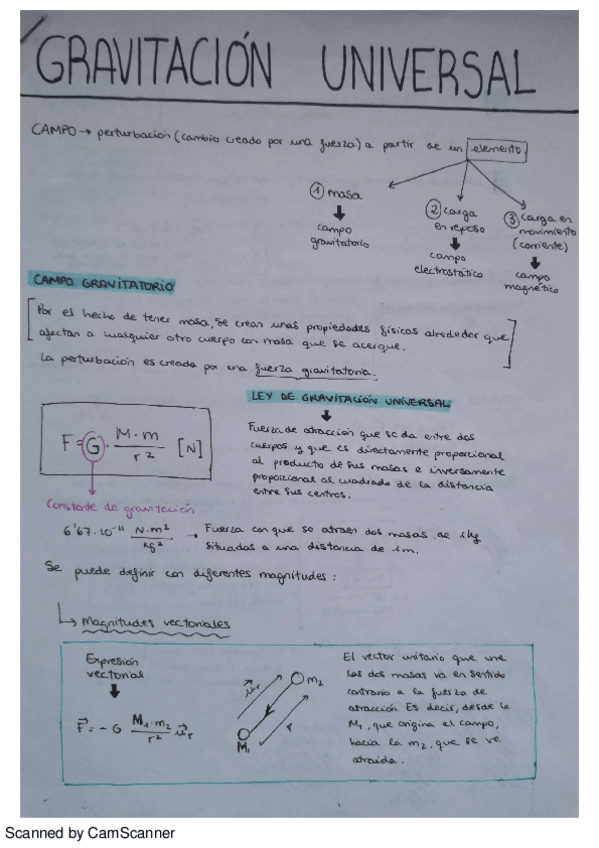 GRAVITACIÓN UNIVERSAL
CAMPO → perturbación (cambio creado por una fuerza) a partir de un elemento
① masa
↓
campo
gravitatorio
② carga
en reposo
↓
campo
electrostático
③ carga en
movimiento
(corriente)
↓
campo
magnético
CAMPO GRAVITATORIO
[Por el hecho de tener masa, se crean unas propiedades físicas alrededor que
afectan a cualquier otro cuerpo con masa que se acerque.]
La perturbación es creada por una fuerza gravitatoria.
F = G · M · m / r² [N]
Constante de gravitación
6'67 · 10⁻¹¹ N·m² / kg² → Fuerza con que se atraen dos masas de 1kg
situadas a una distancia de 1m.
LEY DE GRAVITACIÓN UNIVERSAL
↓
Fuerza de atracción que se da entre dos
cuerpos y que es directamente proporcional
al producto de sus masas e inversamente
proporcional al cuadrado de la distancia
entre sus centros.
Se puede definir con diferentes magnitudes:
↳ Magnitudes vectoriales
Expresión
vectorial
↓
F⃗ = - G M₁·m₂ / r² u⃗r
u⃗r
m₂
r
M₁
El vector unitario que une
las dos masas va en sentido
contrario a la fuerza de
atracción. Es decir, desde la
M₁, que origina el campo,
hacia la m₂, que se ve
atraída.
Scanned by CamScanner